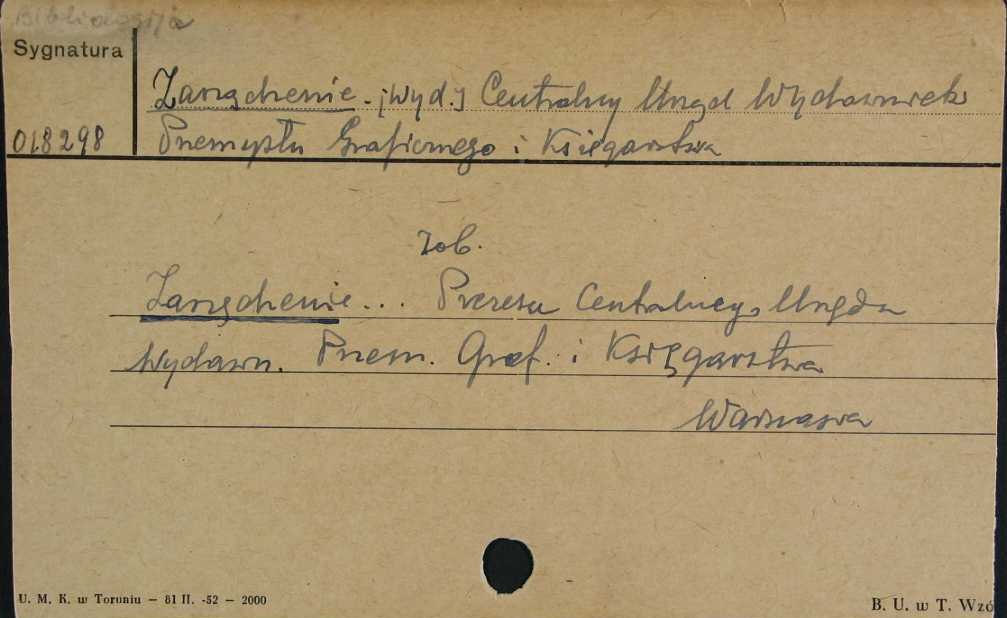 Bibliologija
Sygnatura
Zarządzenie. [Wyd.] Centralny Urząd Wydawnictw
018298
Przemysłu Graficznego i Księgarstwa
zob.
Zarządzenie... Prezesa Centralnego Urzędu
Wydawn. Przem. Graf. i Księgarstwa
Warszawa
U. M. K. w Toruniu — 81 II. -52 — 2000
B. U. w T. Wzó